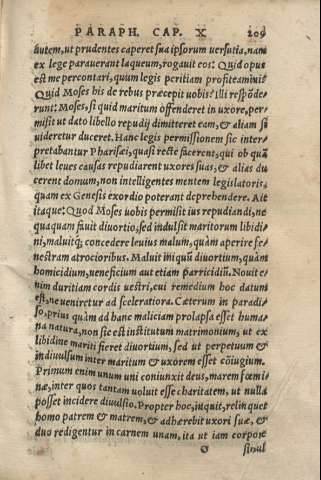 PARAPH. CAP. X 209
autem, ut prudentes caperet sua ipsorum versutia, nam
ex lege parauerant laqueum, rogauit eos: Quid opus
est me percontari, quum legis peritiam profiteamini?
Quid Moses his de rebus præcepit uobis? Illi respōde-
runt: Moses, si quid maritum offenderet in uxore, per-
misit ut dato libello repudij dimitteret eam, & aliam si
uideretur duceret. Hanc legis permissionem sic inter-
pretabantur Pharisæi, quasi recte facerent, qui ob quā
libet leues causas repudiarent uxores suas, & alias du
cerent domum, non intelligentes mentem legislatoris,
quam ex Genesis exordio poterant deprehendere. Ait
itaque: Quod Moses uobis permisit ius repudiandi, ne
quaquam fauit diuortio, sed indulsit maritorum libidi
ni, maluitq; concedere leuius malum, quàm aperire fe-
nestram atrocioribus. Maluit iniquū diuortium, quàm
homicidium, ueneficium aut etiam parricidiū. Nouit e-
nim duritiam cordis uestri, cui remedium hoc datum
est, ne ueniretur ad sceleratiora. Cæterum in paradi-
so, prius quàm ad hanc maliciam prolapsa esset huma
na natura, non sic est institutum matrimonium, ut ex
libidine mariti fieret diuortium, sed ut perpetuum &
indiuulsum inter maritum & uxorem esset cōiugium.
Primum enim unum uni coniunxit deus, marem fœmi-
næ, inter quos tantam uoluit esse charitatem, ut nulla
posset incidere diuulsio. Propter hoc, inquit, relinquet
homo patrem & matrem, & adhærebit uxori suæ, &
duo redigentur in carnem unam, ita ut iam corpore
simul